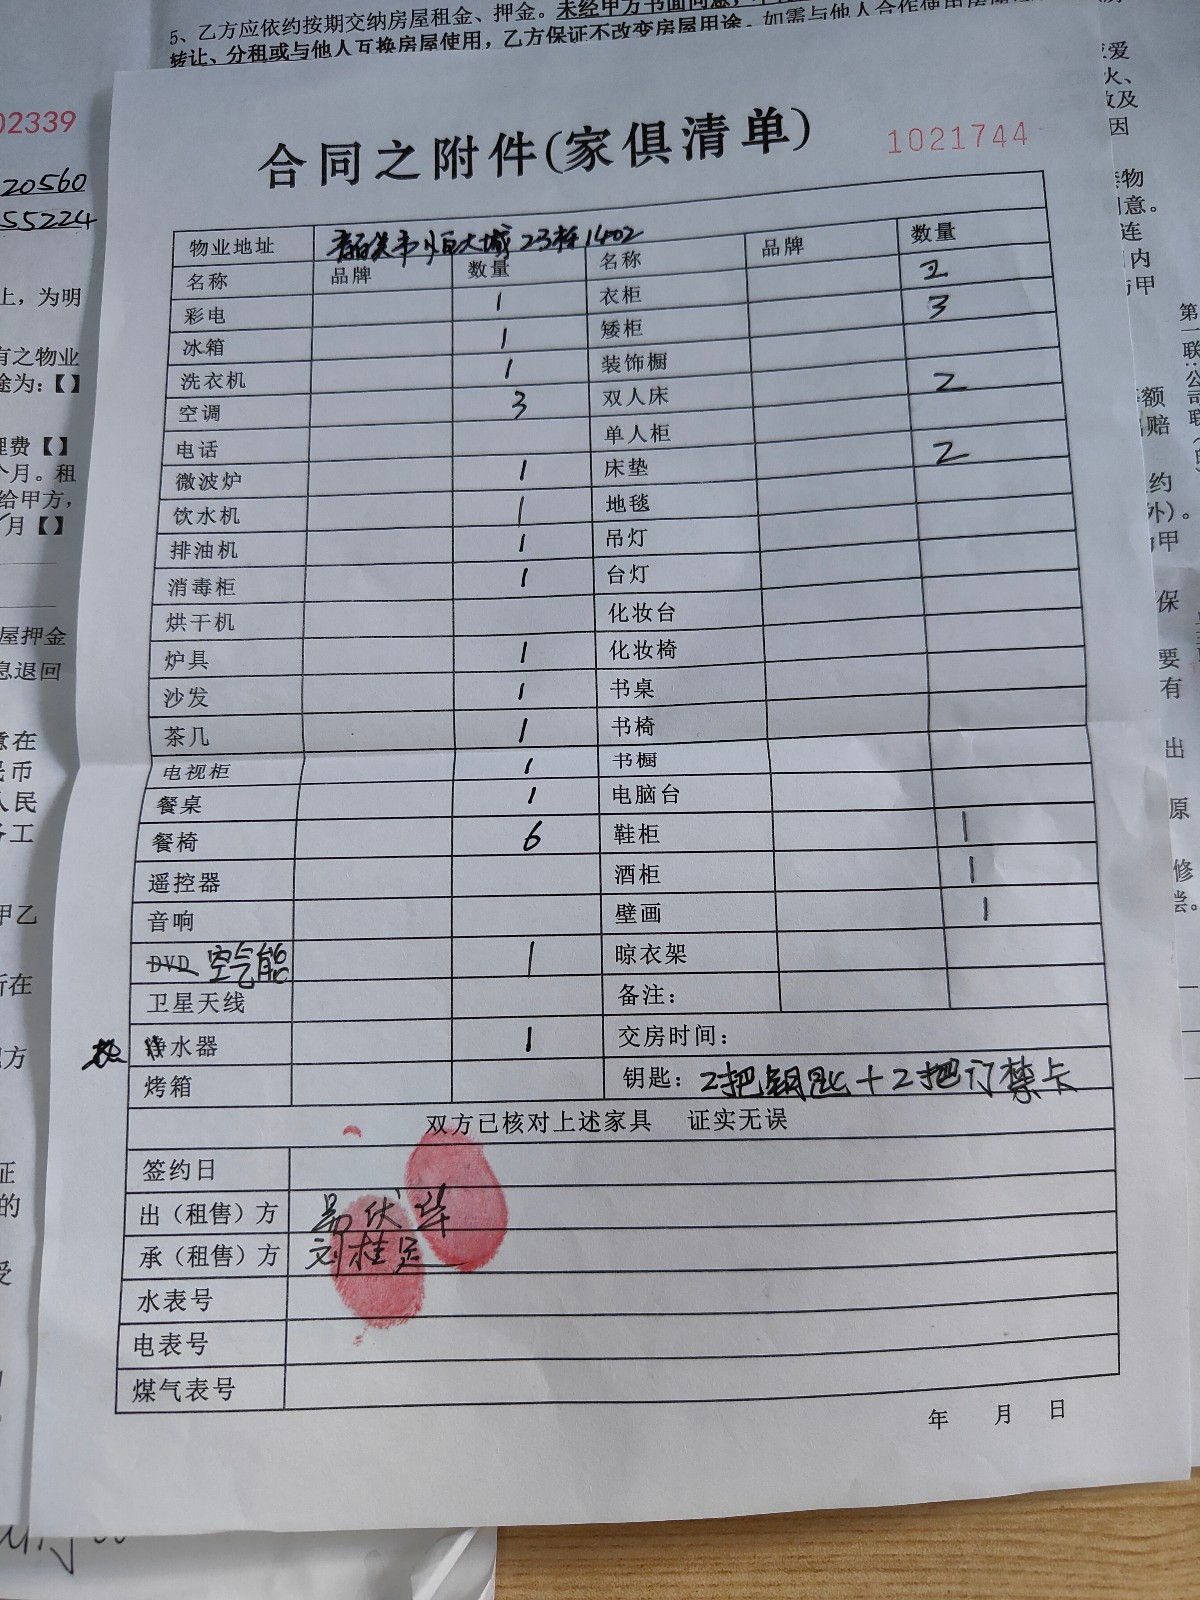 5、乙方应依约按期交纳房屋租金、押金。未经甲方书面同意，
转让、分租或与他人互换房屋使用，乙方保证不改变房屋用途。如需与他人合作使用房屋
02339
20560
55224
合同之附件(家俱清单)
1021744
物业地址 韶关市恒大城23栋1402
名称 品牌 数量 名称 品牌 数量
彩电 1 衣柜 2
冰箱 1 矮柜 3
洗衣机 1 装饰橱
空调 3 双人床 2
电话 单人柜
微波炉 1 床垫 2
饮水机 1 地毯
排油机 1 吊灯
消毒柜 1 台灯
烘干机 化妆台
炉具 1 化妆椅
沙发 1 书桌
茶几 1 书椅
电视柜 1 书橱
餐桌 1 电脑台
餐椅 6 鞋柜 1
遥控器 酒柜 1
音响 壁画 1
DVD 空气能 1 晾衣架
卫星天线 备注：
热水器 1 交房时间：
烤箱 钥匙：2把钥匙+2把门禁卡
双方已核对上述家具 证实无误
签约日
出（租售）方 易伏华
承（租售）方 刘桂
水表号
电表号
煤气表号
年 月 日
上，为明
有之物业
途为：【】
理费【】
个月。租
给甲方，
月【】
屋押金
息退回
意在
民币
人民
务工
甲乙
所在
方
证
的
受
爱
火、
及
因
物
意。
连
内
甲
额
赔
约
外）。
甲
保
要
有
出
原
修
偿。
第
一
联
：
公
司
联